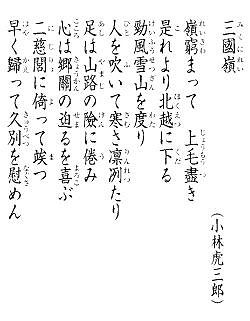 三國嶺
(小林虎三郎)
嶺窮まって 上毛盡き
是れより北越に下る
勁風雪山を度り
人を吹いて寒さ凛冽たり
足は山路の險に倦み
心は郷關の迫るを喜ぶ
二慈閭に倚って竢つ
早く歸って久別を慰めん